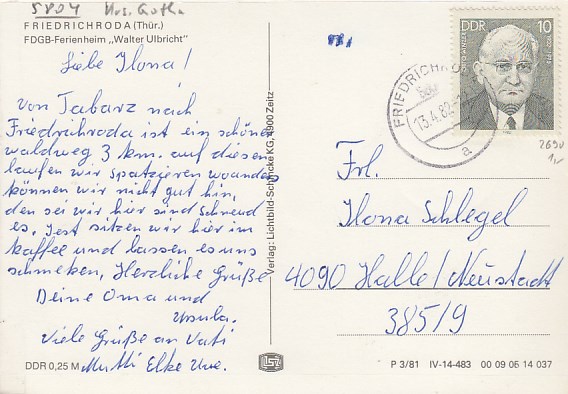 5804 Krs. Gotha
FRIEDRICHRODA (Thür.)
FDGB-Ferienheim „Walter Ulbricht"
Liebe Ilona!
Von Tabarz nach
Friedrichroda ist ein schöner
waldweg 3 km. auf diesen
laufen wir spatzieren woanders
können wir nicht gut hin,
den sei wir hier sind schneud
es. Jest sitzen wir hier im
kaffee und lassen es uns
schmeken, Herzliche Grüße
Deine Oma und
Ursula.
Viele Grüße an Vati
Mutti Elke Uwe.
DDR 0,25 M
Verlag: Lichtbild-Schincke KG, 4900 Zeitz
DDR 10
OTTO WINZER
FRIEDRICHRODA
13.4.82
a
2690
Frl.
Ilona Schlegel
4090 Halle/Neustadt
385/9
P 3/81 IV-14-483 00 09 06 14 037